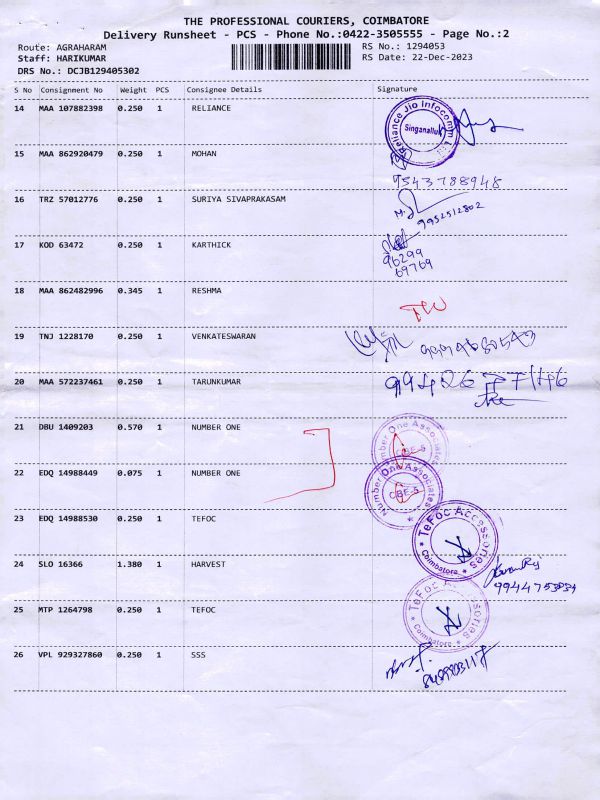 THE PROFESSIONAL COURIERS, COIMBATORE
Delivery Runsheet - PCS - Phone No.:0422-3505555 - Page No.:2
Route: AGRAHARAM
RS No.: 1294053
Staff: HARIKUMAR
RS Date: 22-Dec-2023
DRS No.: DCJB129405302
S No Consignment No Weight PCS Consignee Details Signature
14 MAA 107882398 0.250 1 RELIANCE
Reliance Jio Infocomm Ltd
Singanallur
15 MAA 862920479 0.250 1 MOHAN
9543788948
16 TRZ 57012776 0.250 1 SURIYA SIVAPRAKASAM
9952512802
17 KOD 63472 0.250 1 KARTHICK
96299
69769
18 MAA 862482996 0.345 1 RESHMA
19 TNJ 1228170 0.250 1 VENKATESWARAN
20 MAA 572237461 0.250 1 TARUNKUMAR
21 DBU 1409203 0.570 1 NUMBER ONE
Number One Associates
CBE-5
22 EDQ 14988449 0.075 1 NUMBER ONE
Number One Associates
CBE-5
23 EDQ 14988530 0.250 1 TEFOC
TeFoc Accessories
Coimbatore
24 SLO 16366 1.380 1 HARVEST
25 MTP 1264798 0.250 1 TEFOC
TeFoc Accessories
Coimbatore
26 VPL 929327860 0.250 1 SSS